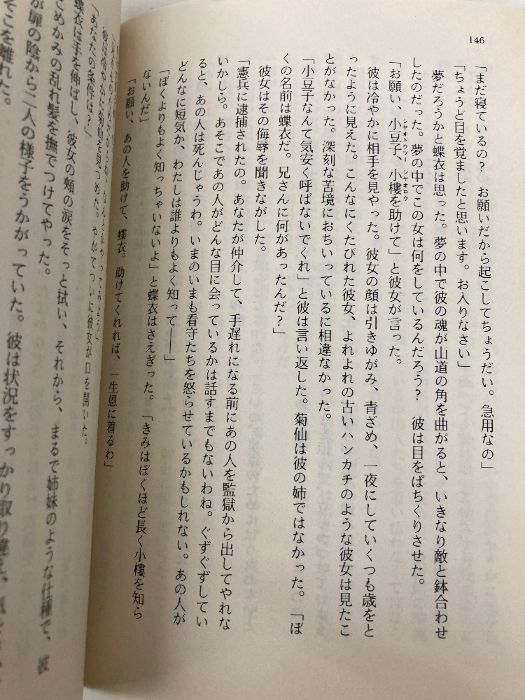 146
「まだ寝ているの? お願いだから起こしてちょうだい。急用なの」
「ちょうど目を覚ましたと思います。お入りなさい」
夢だろうかと蝶衣は思った。夢の中で彼の魂が山道の角を曲がると、いきなり敵と鉢合わせ
したのだった。夢の中でこの女は何をしているんだろう? 彼は目をぱちくりさせた。
「お願い、小豆子、小樓を助けて」と彼女が言った。
彼は冷ややかに相手を見やった。彼女の顔は引きゆがみ、青ざめ、一夜にしていくつも歳をと
ったように見えた。こんなにくたびれた彼女、よれよれの古いハンカチのような彼女は見たこ
とがなかった。深刻な苦境におちいっているに相違なかった。
「小豆子なんて気安く呼ばないでくれ」と彼は言い返した。菊仙は彼の姉ではなかった。「ぼ
くの名前は蝶衣だ。兄さんに何があったんだ?」
彼女はその侮辱を聞きながした。
「憲兵に逮捕されたの。あなたが仲介して、手遅れになる前にあの人を監獄から出してやれな
いかしら。あそこであの人がどんな目に会っているかは話すまでもないわね。ぐずぐずしてい
ると、あの人は死んじゃうわ。いまのいまも看守たちを怒らせているかもしれない。あの人が
どんなに短気か、わたしは誰よりもよく知って——」
「ぼくよりもよく知っちゃいないよ」と蝶衣はさえぎった。「きみはぼくほど長く小樓を知ら
ないんだ」
「お願い、あの人を助けて、蝶衣。助けてくれれば、一生恩に着るわ」
「あなたの条件は?」
彼女は手を伸ばし、彼女の頬の涙をそっと拭い、それから、まるで姉妹のような仕種で、
こめかみの乱れ髪を撫でつけてやった。
が扉の陰から二人の様子をうかがっていた。彼は状況をすっかり取り違え、
そこを離れた。